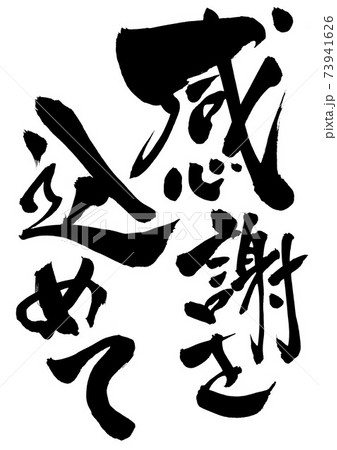 感謝を
込めて
PIXTA
pixta.jp - 73941626